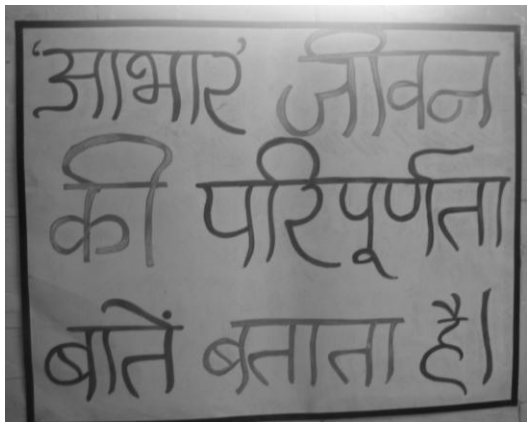 'आभार' जीवन
की परिपूर्णता
बातें बताता है।